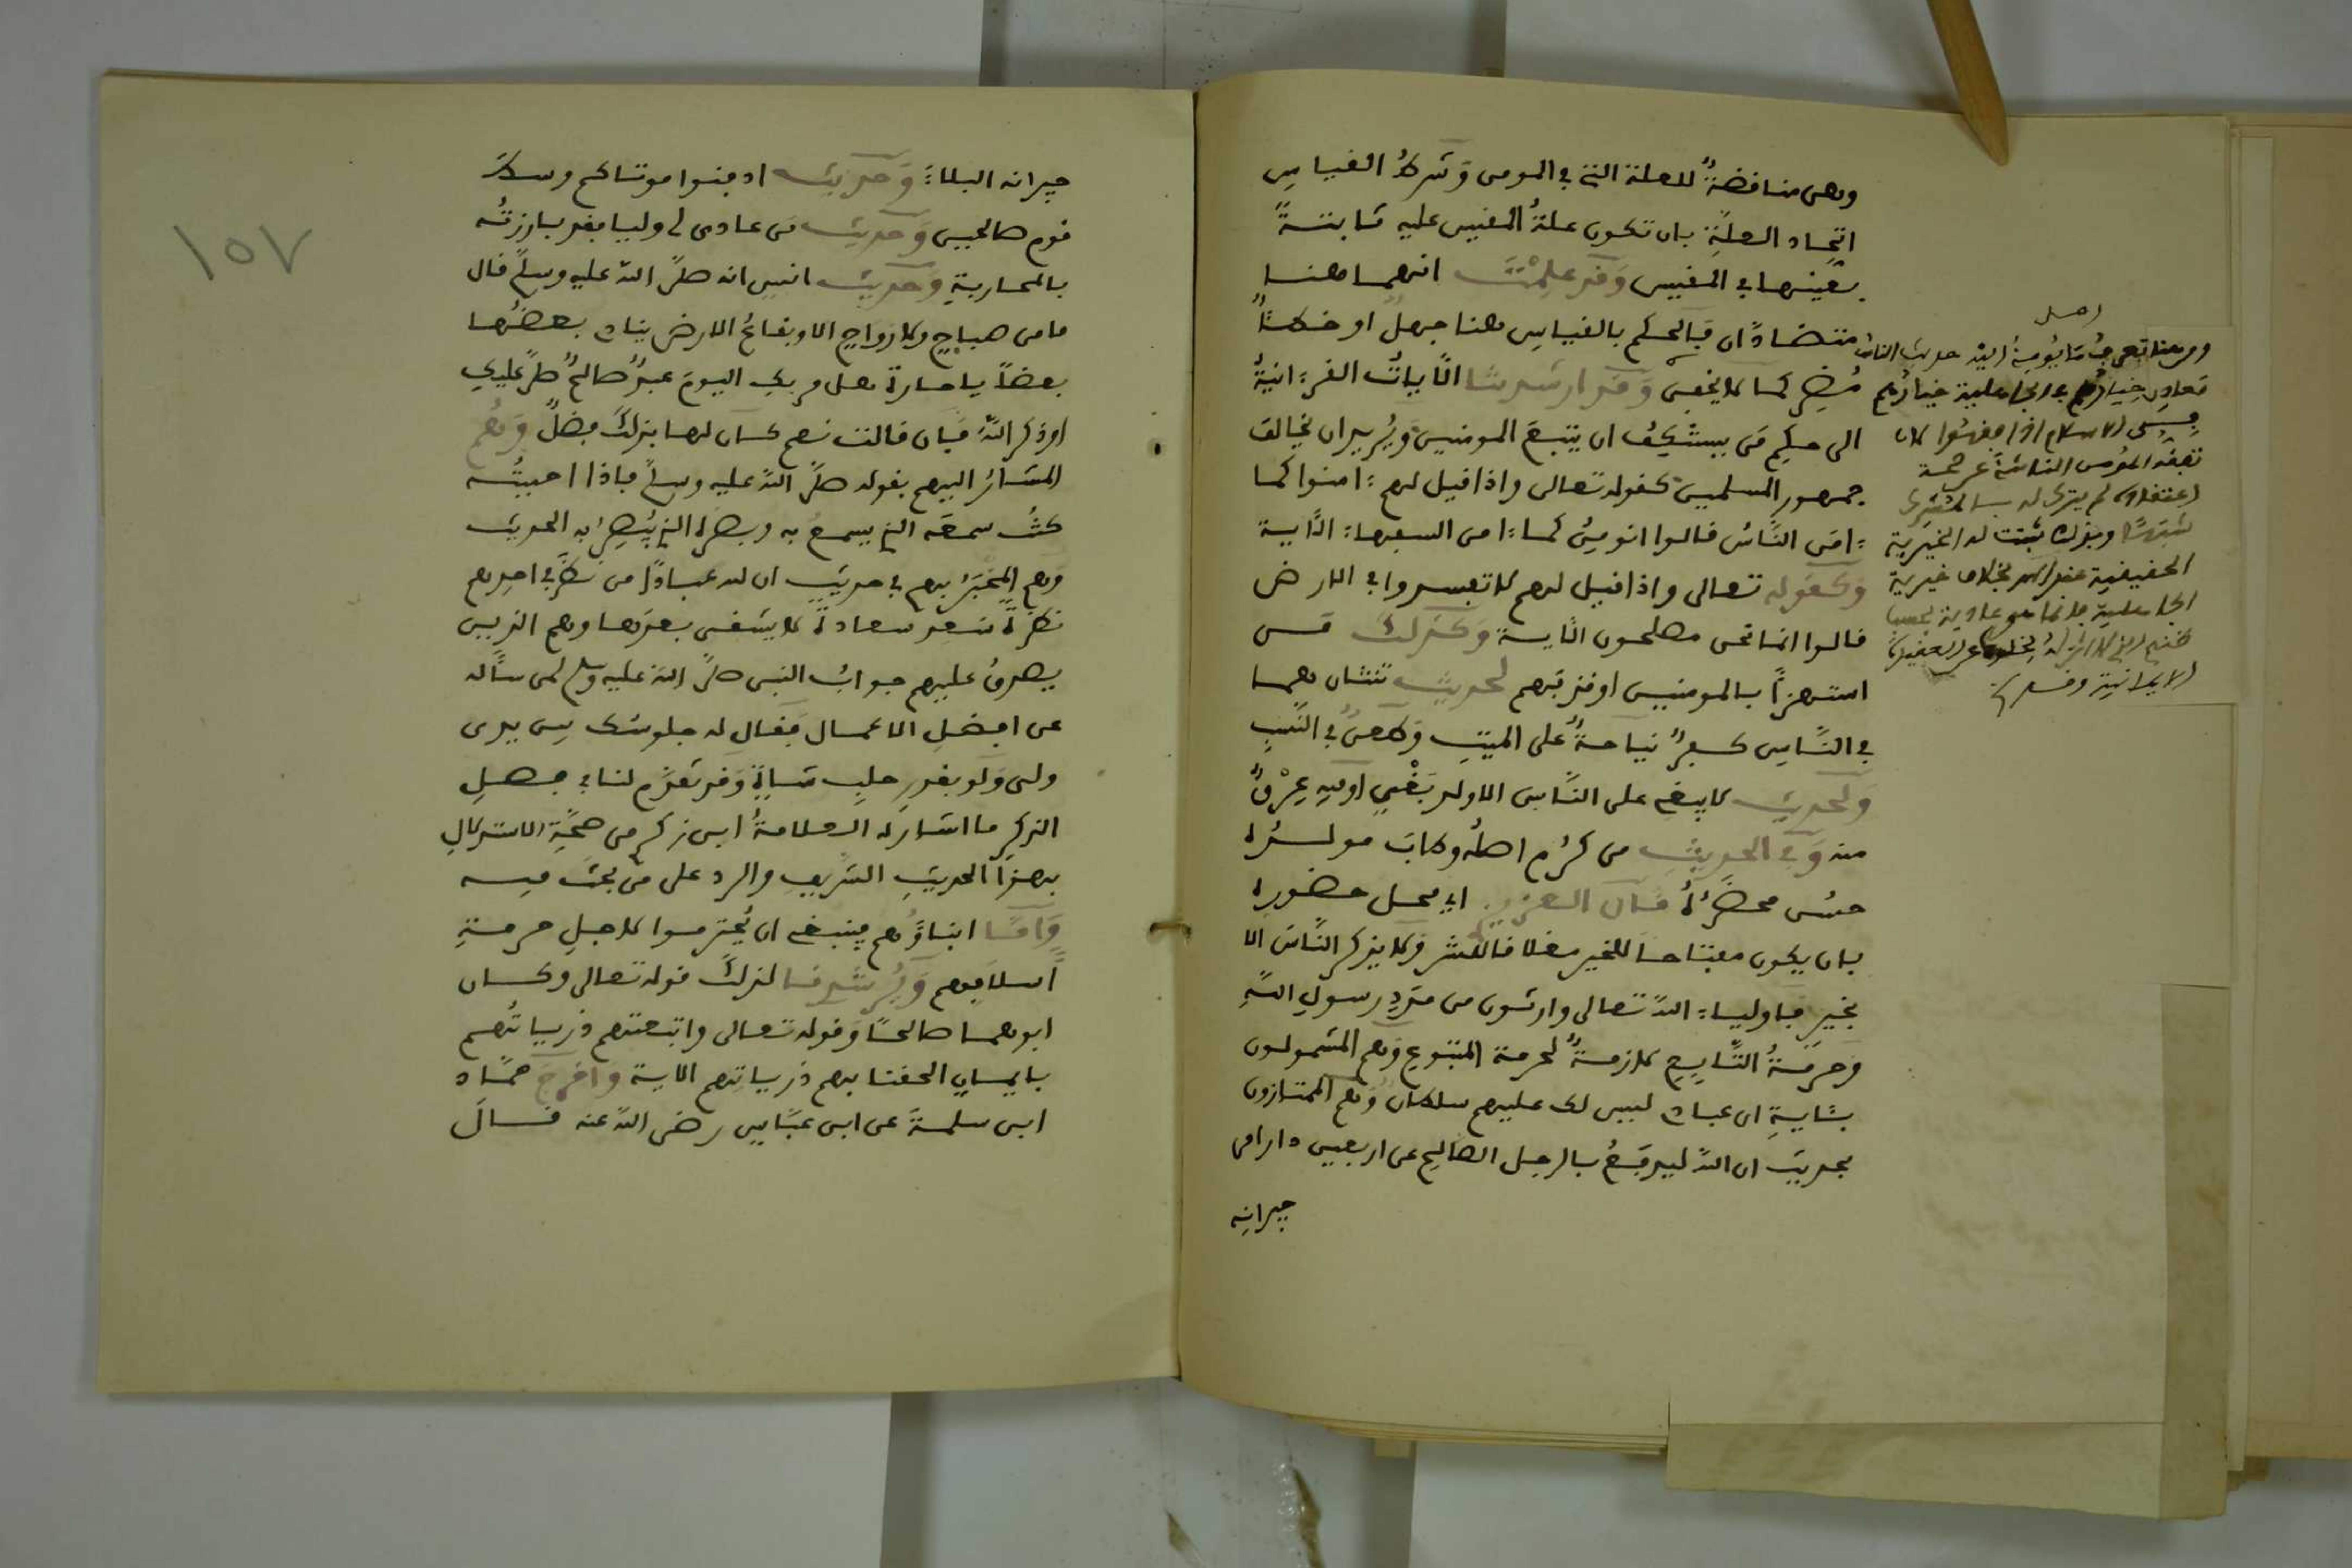 وهى منافضة للعلة التى في المومن وشرط القياس
اتحاد العلة بان تكون علة المقيس عليه ثابتة
بعينها في المقيس وقد علمت انهما هنا
متضادان فالحكم بالقياس هنا جهل او خطأ
مضر كما لا يخفى وقد ارشدتنا الآيات القرءانية
الى حكم من يستنكف ان يتبع المومنين ويريد ان يخالف
جمهور المسلمين كقوله تعالى واذا قيل لهم ءامنوا كما
ءامن الناس قالوا انومن كما ءامن السفهاء الآية
وكقوله تعالى واذا قيل لهم لا تفسدوا في الارض
قالوا انما نحن مصلحون الآية وكذلك من
استهزأ بالمومنين او قذفهم لحديث ثنتان هما
في الناس كفر نياحة على الميت وطعن في النسب
ولحديث لا يبغى على الناس الا ولد بغي او فيه عرق
منه وفي الحديث من كرم اصله وطاب مولده
حسن محضره قال العزيزي اي محل حضوره
بان يكون مفتاحا للخير مغلاقا للشر ولا يذكر الناس الا
بخير فاولياء الله تعالى وارثون من مدد رسول الله
وحرمة التابع لازمة لحرمة المتبوع وهم المشمولون
بآية ان عبادي ليس لك عليهم سلطان وهم الممتازون
بحديث ان الله ليدفع بالرجل الصالح عن اربعين دارا من
جيرانه
اصل
ومن هنا تعرف ما يومئ اليه حديث الناس
معادن خيارهم في الجاهلية خيارهم
في الاسلام اذا فقهوا لان
تفقه المومن الناشئ عن صحة
اعتقاده لم يترك له بالمشرك
شبها وبذلك ثبتت له الخيرية
الحقيقية بخلاف خيرية
الجاهلية فانما هو عادية
الايمانية
١٥٧
جيرانه البلاء وحديث ادفنوا موتاكم وسط
قوم صالحين وحديث من عادى لى وليا فقد بارزته
بالمحاربة وحديث انس انه صلى الله عليه وسلم قال
ما من صباح ولا رواح الا وبقاع الارض ينادي بعضها
بعضا يا جارة هل مر بك اليوم عبد صالح صلى عليك
او ذكر الله فان قالت نعم كان لها بذلك فضل وهم
المشار اليهم بقوله صلى الله عليه وسلم فاذا احببته
كنت سمعه الذي يسمع به وبصره الذي يبصر به الحديث
وهم المخبر بهم في حديث ان لله عبادا من نظر في احدهم
نظرة سعد سعادة لا يشقى بعدها وهم الذين
يصدق عليهم جواب النبى صلى الله عليه وسلم لمن سأله
عن افضل الاعمال فقال له جلوسك بين يدى
ولى ولو بقدر حلب شاة وقد تقدم لنا في فصل
الذكر ما اشار له العلامة ابن زكري من صحة الاستدلال
بهذا الحديث الشريف والرد على من بحث فيه
واما ابناؤهم فينبغى ان يحترموا لاجل حرمة
اسلافهم ويرشدنا لذلك قوله تعالى وكان
ابوهما صالحا وقوله تعالى واتبعتهم ذرياتهم
بايمان الحقنا بهم ذرياتهم الاية واخرج حماد
ابن سلمة عن ابن عباس رضى الله عنه قال